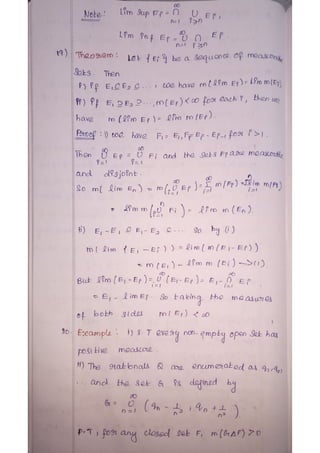 Note: lim sup Ei = ∩ n=1 ∞ ∪ i≥n Ei,
lim inf Ei = ∪ n=1 ∞ ∩ i≥n Ei
19.) Theorem: Let {Ei} be a sequence of measurable
Sets. Then
i) if E1 ⊆ E2 ⊆ ..., we have m(lim Ei) = lim m(Ei)
ii) if E1 ⊇ E2 ⊇ ..., m(Ei) < ∞ for each i, then we
have m(lim Ei) = lim m(Ei).
Proof: i) we have F1 = E1, Fi = Ei - Ei-1 for i > 1.
Then ∞ ∪ i=1 Ei = ∞ ∪ i=1 Fi and the sets Fi are measurable
and disjoint.
So m(lim En) = m(∞ ∪ i=1 Ei) = ∞ Σ i=1 m(Fi) = lim n Σ i=1 m(Fi)
= lim m(n ∪ i=1 Fi) = lim m(En).
ii) E1 - E1 ⊆ E1 - E2 ⊆ .... So by (i)
m(lim (E1 - Ei)) = lim(m(E1 - Ei))
= m(E1) - lim m(Ei) → (1)
But lim(E1 - Ei) = ∞ ∪ i=1 (E1 - Ei) = E1 - ∞ ∩ i=1 Ei
= E1 - lim Ei. So taking the measures
of both sides m(E1) < ∞
20. Example: i) S.T every non-empty open Set has
positive measure.
ii) The rationals Q are enumerated as q1, q2,
... and the set G is defined by
G = ∞ ∪ n=1 (qn - 1/n², qn + 1/n²)
P.T, for any closed set F, m(G∆F) > 0